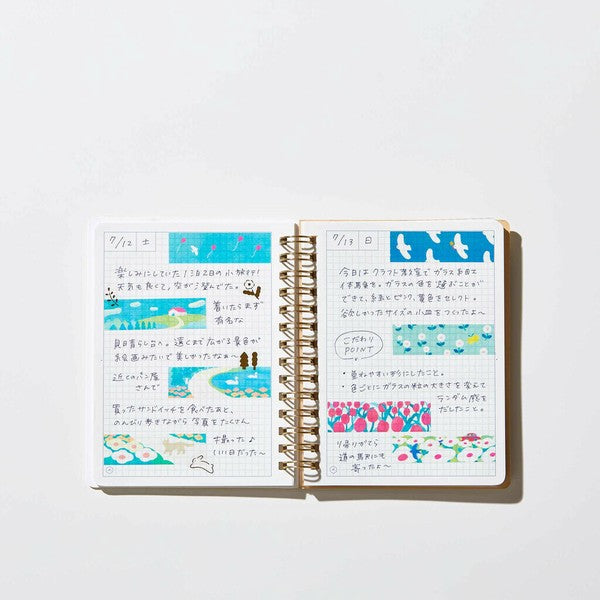 7/12 土
楽しみにしていた1泊2日の小旅行!
天気も良くて、空が澄んでた。
着いたらまず
有名な
見晴らし台へ。遠くまで広がる景色が
絵画みたいで美しかったなぁ〜
近くのパン屋
さんで
買ったサンドイッチを食べたあと、
のんびり歩きながら写真をたくさん
撮った♪
いい1日だった〜
7/13 日
今日はクラフト教室でガラス細工
体験を。ガラスの色を選ぶことが
できて、紺とピンク、黄色をセレクト。
欲しかったサイズの小皿をつくったよ〜
こだわり
POINT
・重ねやすい形にしたこと。
・色ごとにガラスの粒の大きさを変えて
ランダム感を
だしたこと。
帰りがてら
道の駅にも
寄ったよ〜